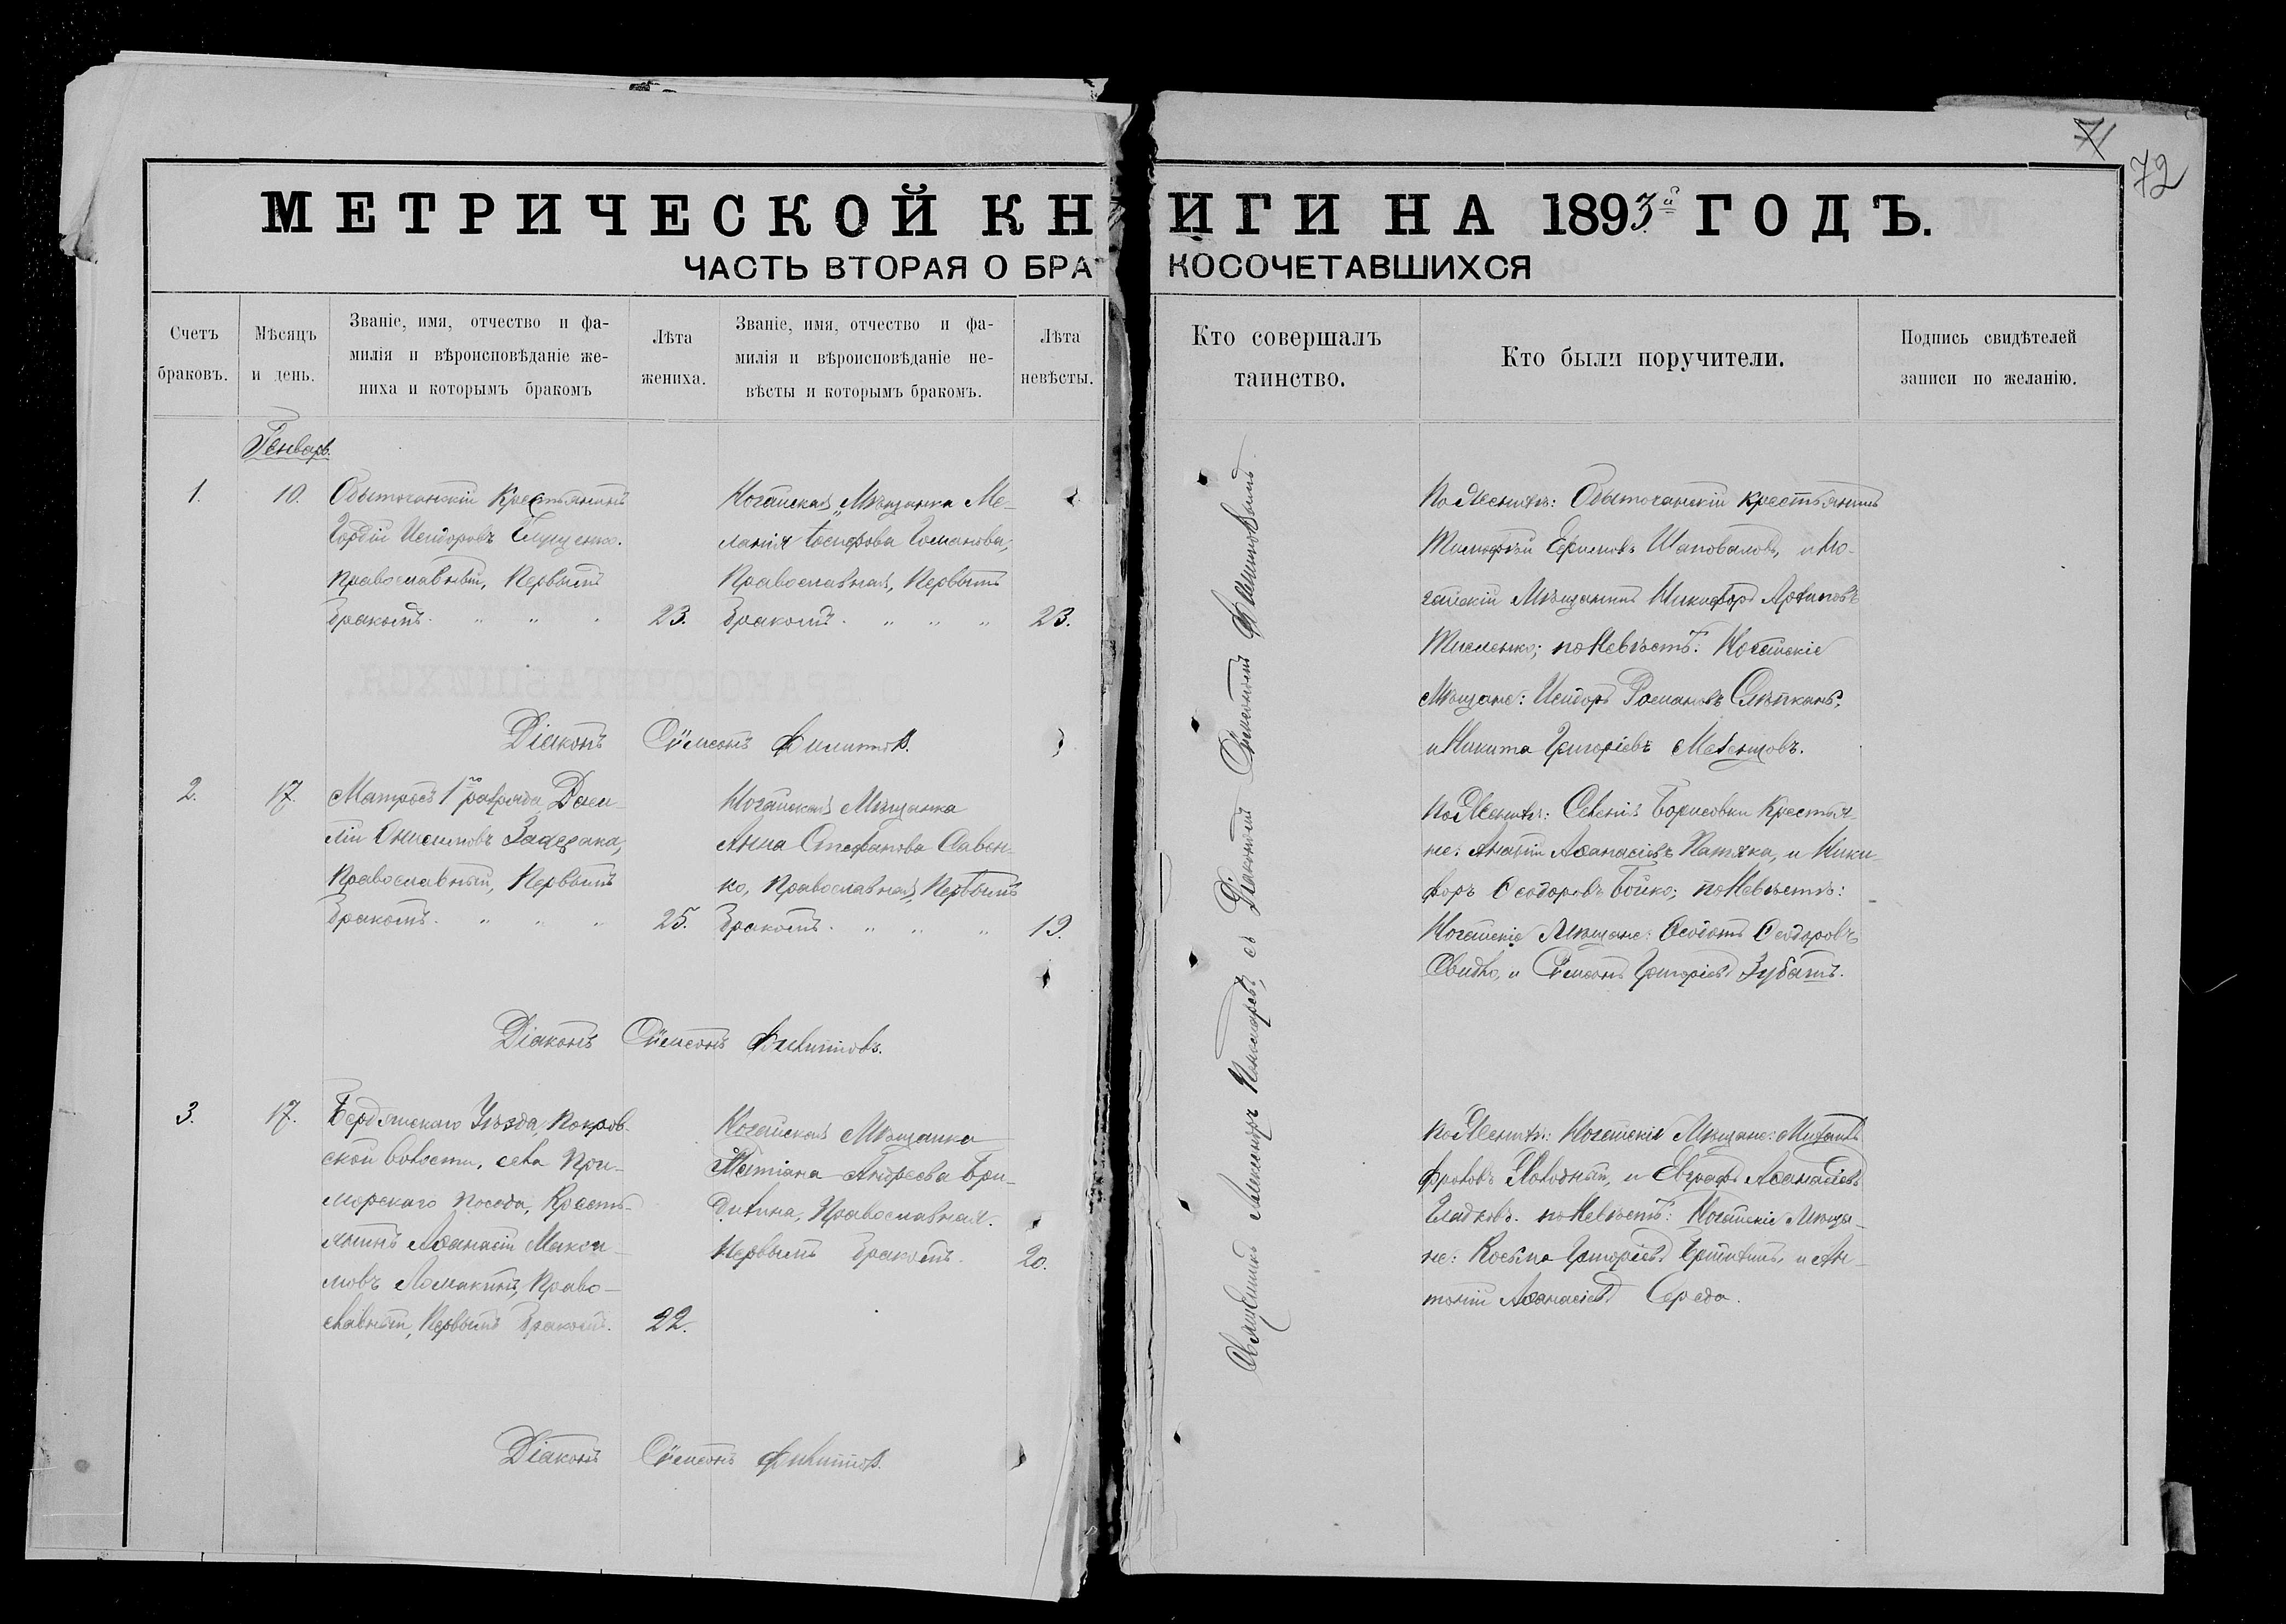 71
72
МЕТРИЧЕСКОЙ КНИГИ НА 1893й ГОДЪ.
ЧАСТЬ ВТОРАЯ О БРАКОСОЧЕТАВШИХСЯ
Счетъ
браковъ.
Мѣсяцъ
и день.
Званіе, имя, отчество и фа-
милія и вѣроисповѣданіе же-
ниха и которымъ бракомъ
Лѣта
жениха.
Званіе, имя, отчество и фа-
милія и вѣроисповѣданіе не-
вѣсты и которымъ бракомъ.
Лѣта
невѣсты.
Кто совершалъ
таинство.
Кто были поручители.
Подпись свидѣтелей
записи по желанію.
Генварь.
1.
10.
Обыточанскій Крестьянинъ
Гордій Исидоровъ Глущенко.
Православный, Первымъ
Бракомъ. " " "
23.
Ногайская Мѣщанка Ме-
ланія Іосифова
Православная, Первымъ
Бракомъ. " " "
23.
По Женихѣ: Обыточанскій крестьянинъ
Тимофей Ефимовъ Шаповаловъ, и Но-
гайскій Мѣщанинъ Никифоръ Архиповъ
по Невѣстѣ: Ногайскіе
Мѣщане: Исидоръ Романовъ
и Никита Григорьевъ
Діаконъ Сѵмеонъ Филиповъ.
2.
17.
Матросъ 1го разряда
Онисимовъ Задерака,
Православный, Первымъ
Бракомъ. " " "
25.
Ногайская Мѣщанка
Анна Стефанова Савен-
ко, Православная, Первымъ
Бракомъ. " " "
19.
По Женихѣ: Селенія Борисовки Крестья-
не: Ананій Аѳанасіевъ Патяка, и Ники-
форъ Ѳеодоровъ Бойко; по Невѣстѣ:
Ногайскіе Мѣщане: Ѳеодоровъ
и Сѵмеонъ Григоріевъ Зубатъ.
Діаконъ Сѵмеонъ Филиповъ.
3.
17.
Бердянскаго Уѣзда, Покров-
ской волости, села При-
морскаго Посада, Кресть-
янинъ Аѳанасій Макси-
мовъ Ломакинъ, Право-
славный, Первымъ Бракомъ.
22.
Ногайская Мѣщанка
Татіана Андреева Бри-
Православная.
Первымъ Бракомъ.
20.
По Женихѣ: Ногайскіе Мѣщане: Михаилъ
Фроловъ Холодный, и Евграфъ Аѳанасіевъ
Гладковъ. по Невѣстѣ: Ногайскіе Мѣща-
не: Косьма Григорьевъ и Ан-
тоній Аѳанасіевъ Середа.
Діаконъ Сѵмеонъ Филиповъ.
Священникъ Александръ Пономаревъ, съ Діакономъ Сѵмеономъ Филиповымъ